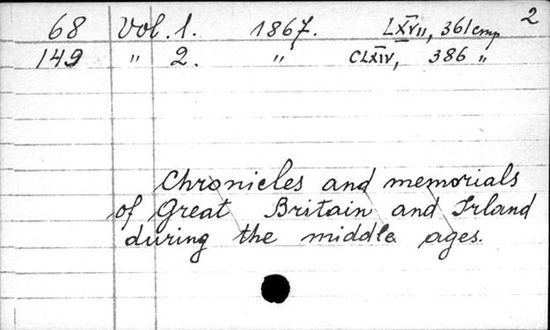 2
68 Vol. 1. 1867. LXVII, 361 стр
149 " 2. " CLXIV, 386 "
Chronicles and memorials
of Great Britain and Irland
during the middle ages.